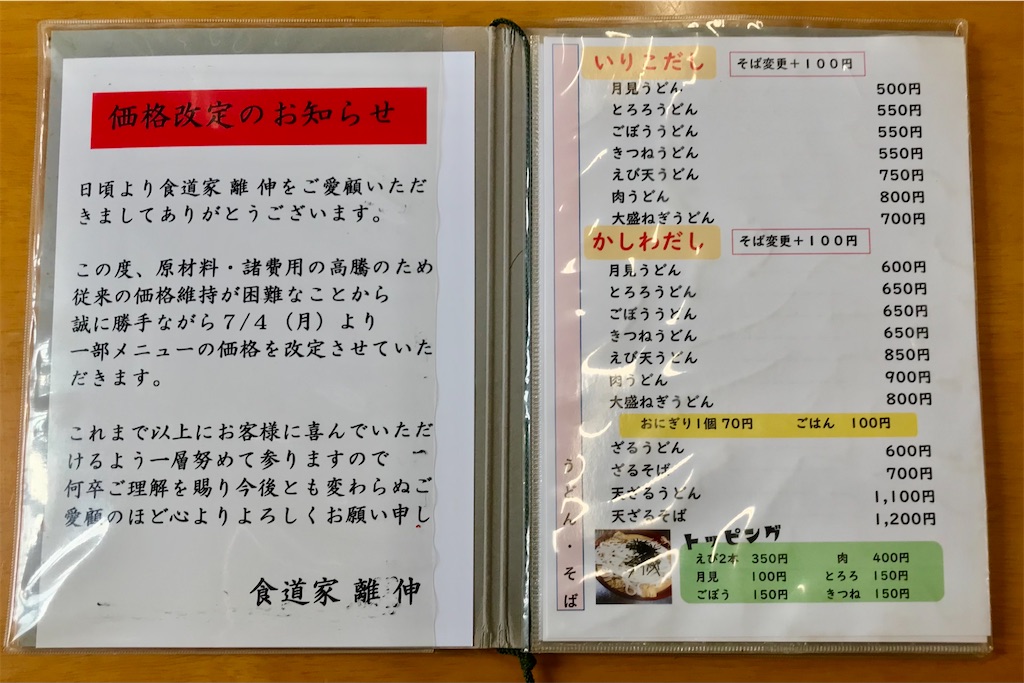 価格改定のお知らせ
日頃より食道家 離 伸をご愛顧いただ
きましてありがとうございます。
この度、原材料・諸費用の高騰のため
従来の価格維持が困難なことから
誠に勝手ながら7/4（月）より
一部メニューの価格を改定させていた
だきます。
これまで以上にお客様に喜んでいただ
けるよう一層努めて参りますので
何卒ご理解を賜り今後とも変わらぬご
愛顧のほど心よりよろしくお願い申し
食道家 離 伸
うどん・そば
いりこだし そば変更＋100円
月見うどん 500円
とろろうどん 550円
ごぼううどん 550円
きつねうどん 550円
えび天うどん 750円
肉うどん 800円
大盛ねぎうどん 700円
かしわだし そば変更＋100円
月見うどん 600円
とろろうどん 650円
ごぼううどん 650円
きつねうどん 650円
えび天うどん 850円
肉うどん 900円
大盛ねぎうどん 800円
おにぎり1個 70円 ごはん 100円
ざるうどん 600円
ざるそば 700円
天ざるうどん 1,100円
天ざるそば 1,200円
トッピング
えび2本 350円 肉 400円
月見 100円 とろろ 150円
ごぼう 150円 きつね 150円